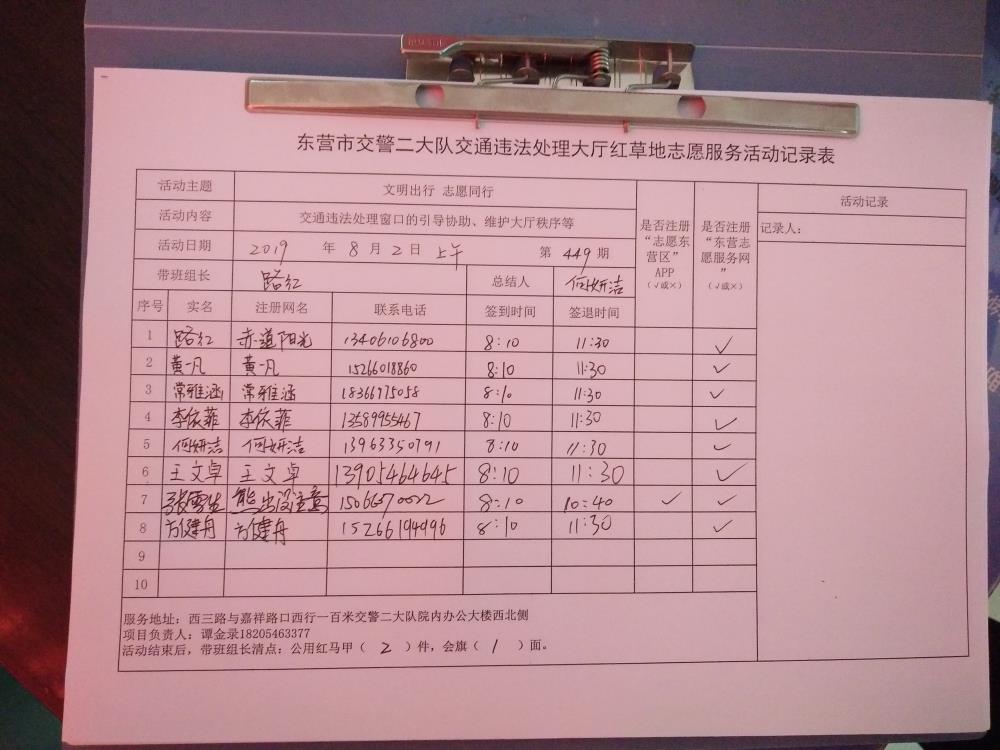 东营市交警二大队交通违法处理大厅红草地志愿服务活动记录表
活动主题 文明出行 志愿同行
活动内容 交通违法处理窗口的引导协助、维护大厅秩序等
活动日期 2019 年 8 月 2 日 上午 第 449 期
带班组长 路红 总结人 何妍洁
序号 实名 注册网名 联系电话 签到时间 签退时间
是否注册
“志愿东
营区”
APP
(√或×)
是否注册
“东营志
愿服务网
”
(√或×)
活动记录
记录人:
1 路红 赤道阳光 13406106800 8:10 11:30 ✓
2 黄一凡 黄一凡 15266018860 8:10 11:30 ✓
3 常雅涵 常雅涵 18366775058 8:10 11:30 ✓
4 李依菲 李依菲 13589955467 8:10 11:30 ✓
5 何妍洁 何妍洁 13963350791 8:10 11:30 ✓
6 王文卓 王文卓 13905464645 8:10 11:30 ✓
7 熊出没注意 8:10 10:40 ✓ ✓
8 方健舟 方健舟 15266194496 8:10 11:30 ✓
9
10
服务地址: 西三路与嘉祥路口西行一百米交警二大队院内办公大楼西北侧
项目负责人: 谭金录18205463377
活动结束后, 带班组长清点: 公用红马甲( 2 )件, 会旗( 1 )面。